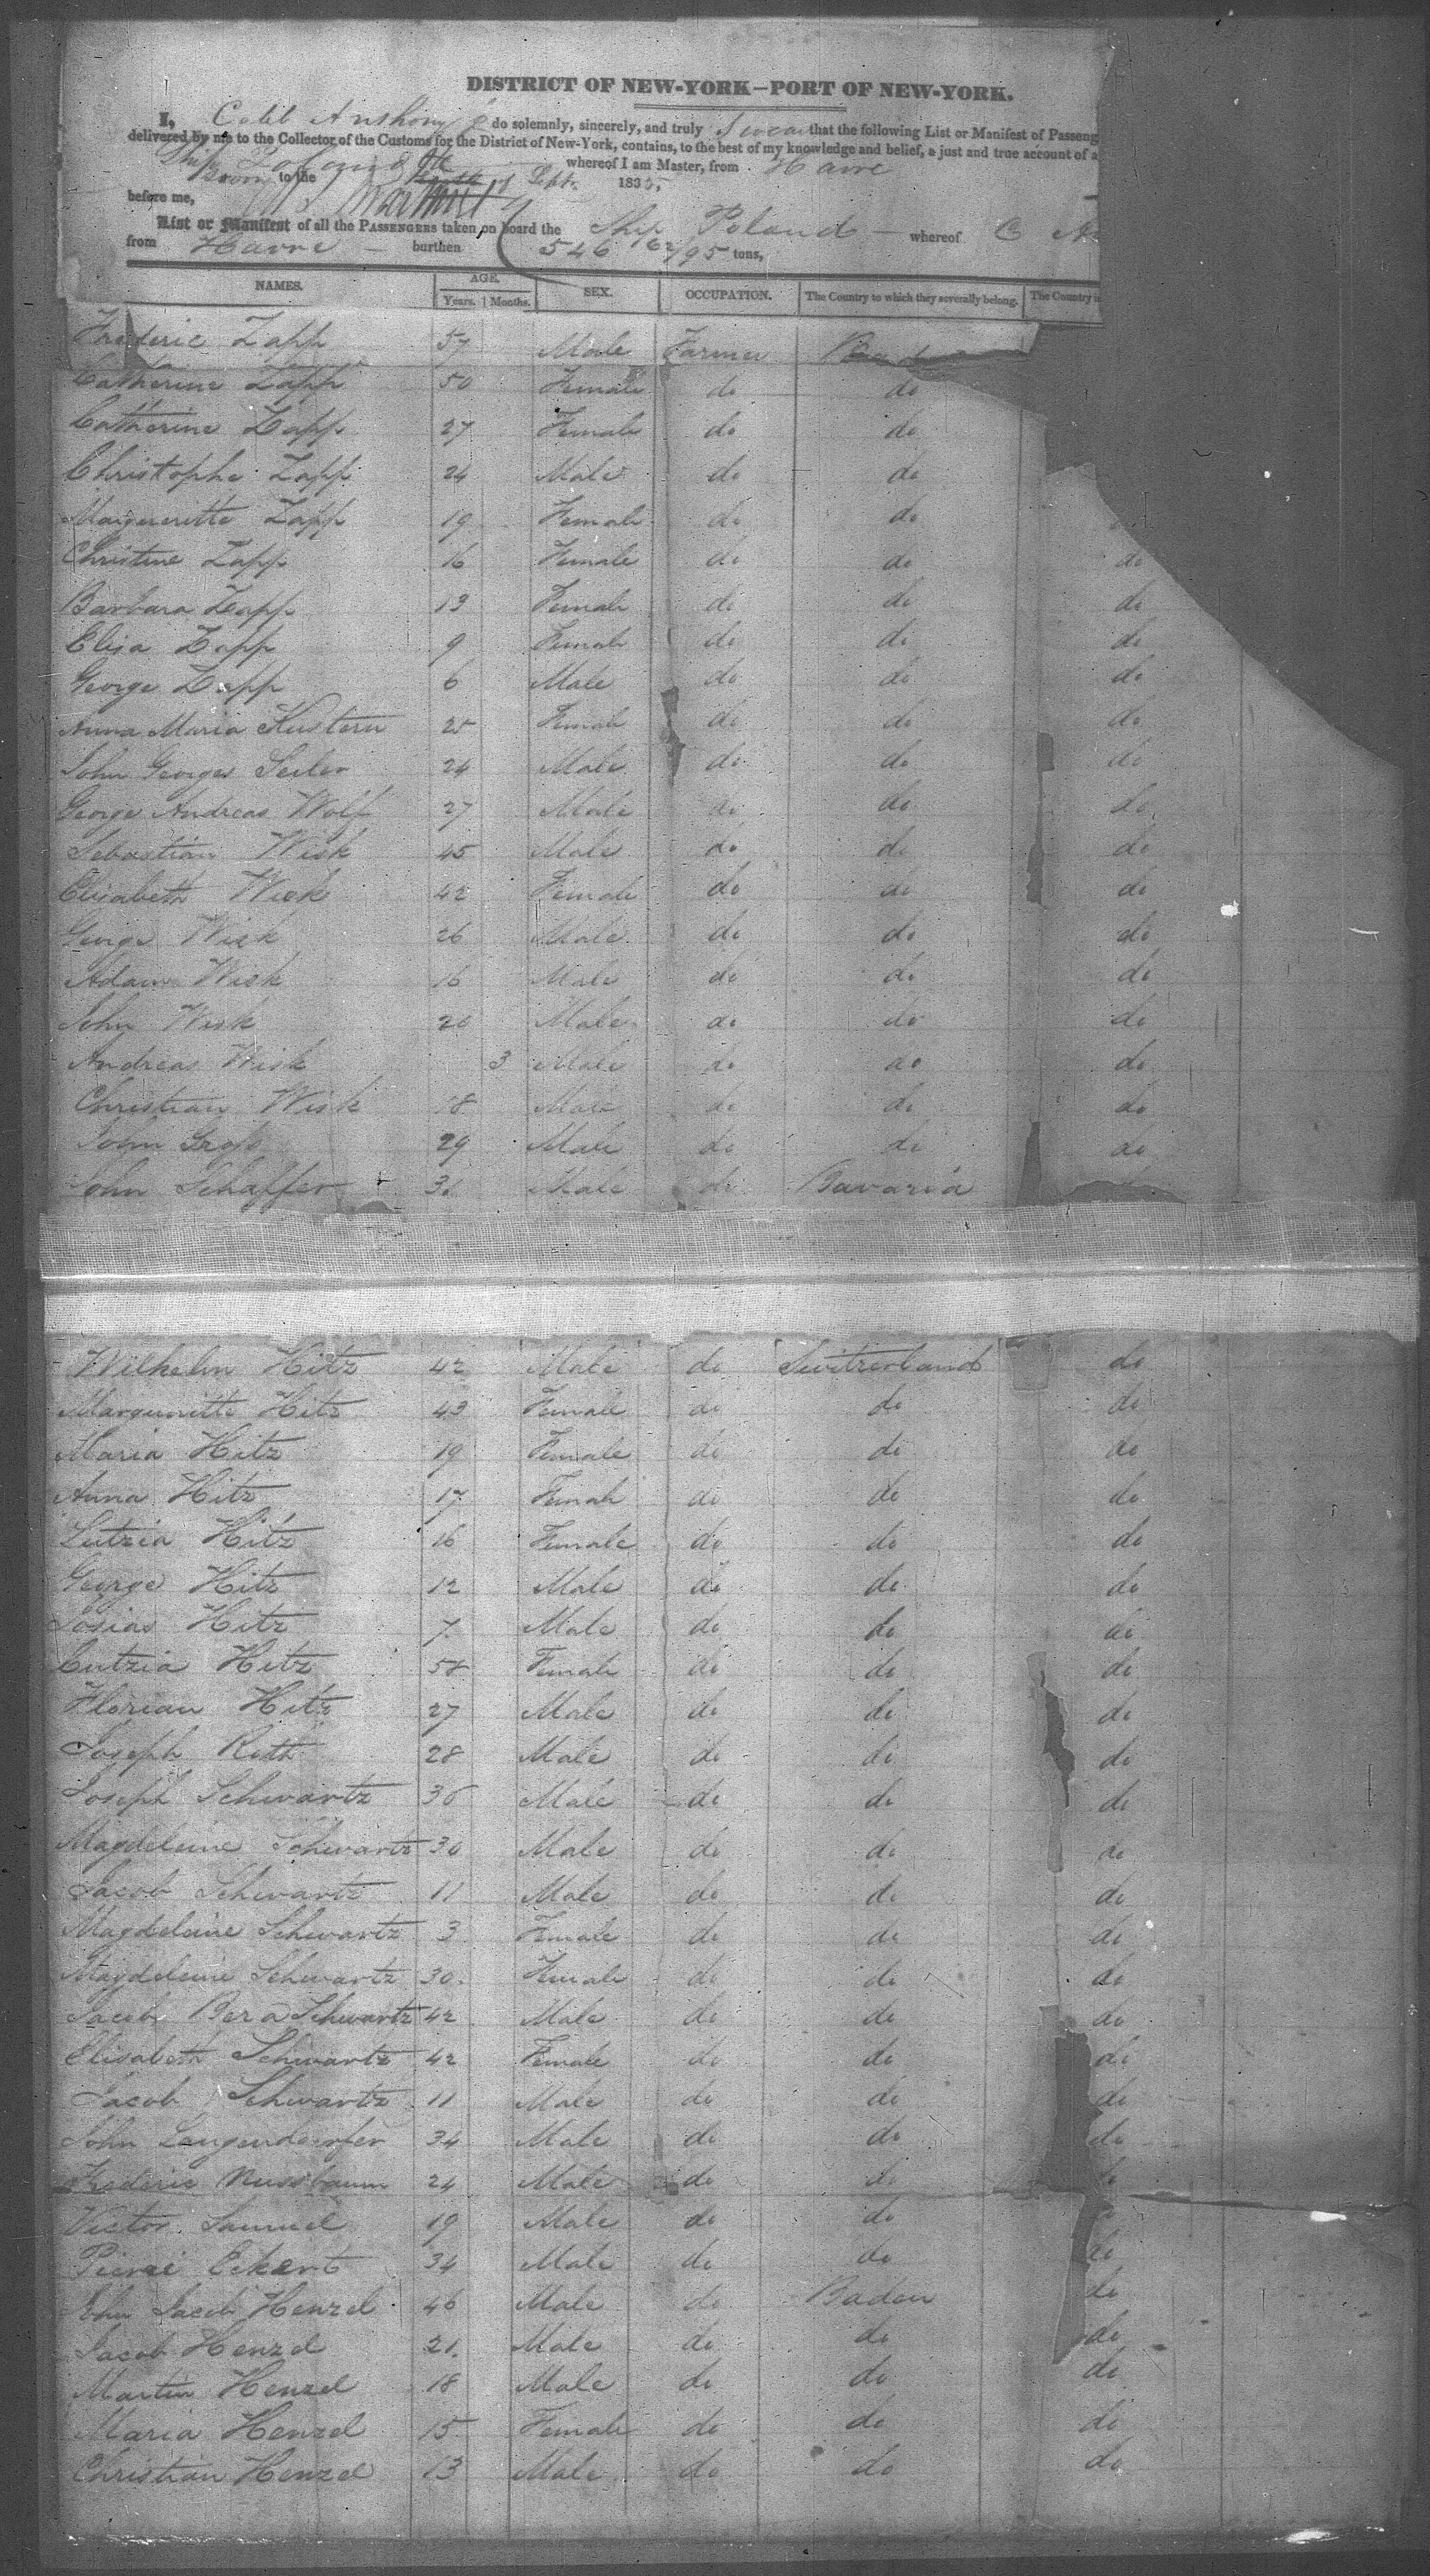 DISTRICT OF NEW-YORK—PORT OF NEW-YORK.
I, Caleb Anthony Jr do solemnly, sincerely, and truly swear that the following List or Manifest of Passeng
delivered by me to the Collector of the Customs for the District of New-York, contains, to the best of my knowledge and belief, a just and true account of a
Ship Poland whereof I am Master, from Havre
Sworn to the Sept. 183
before me,
List or Manifest of all the PASSENGERS taken on board the Ship Poland whereof C
from Havre burthen 546 62/95 tons,
NAMES. AGE. SEX. OCCUPATION. The Country to which they severally belong. The Country i
Years. Months.
Frederic Zapp 57 Male Farmer
Catherine Zapp 50 Female do do
Catherine Zapp 27 Female do do
Christophe Zapp 24 Male do do
Margueritte Zapp 19 Female do do
Christine Zapp 16 Female do do do
Barbara Zapp 13 Female do do do
Elisa Zapp 9 Female do do do
George Zapp 6 Male do do do
Anna Maria Kustern 25 Female do do do
John Georges Seiler 24 Male do do do
George Andreas Wolf 27 Male do do do
Sebastian Wisk 45 Male do do do
Elisabeth Wisk 42 Female do do do
George Wisk 26 Male do do do
Adam Wisk 16 Male do do do
John Wisk 20 Male do do do
Andreas Wisk 3 Male do do do
Christian Wisk 18 Male do do do
John Gross 29 Male do do do
John Schaffer Male do Bavaria
Wilhelm Hitz 42 Male do Switzerland do
Margueritte Hitz 43 Female do do do
Maria Hitz 19 Female do do do
Anna Hitz 17 Female do do do
Lutzia Hitz 16 Female do do do
George Hitz 12 Male do do do
Josias Hitz 7 Male do do do
Cutzia Hitz 58 Female do do do
Florian Hitz 27 Male do do do
Joseph Roth 28 Male do do do
Joseph Schwartz 36 Male do do do
Magdeleine Schwartz 30 Male do do do
Jacob Schwartz 11 Male do do do
Magdeleine Schwartz 3 Female do do do
Magdeleine Schwartz 30 Female do do do
Jacob Bera Schwartz 42 Male do do do
Elisabeth Schwartz 42 Female do do do
Jacob Schwartz 11 Male do do do
John Langendorfer 34 Male do do do
Frederic Nussbaum 24 Male do do do
Victor Samuel 19 Male do do do
Pierre Eckert 34 Male do do do
John Jacob Henzel 46 Male do Baden do
Jacob Henzel 21 Male do do do
Martin Henzel 18 Male do do do
Maria Henzel 15 Female do do do
Christian Henzel 13 Male do do do